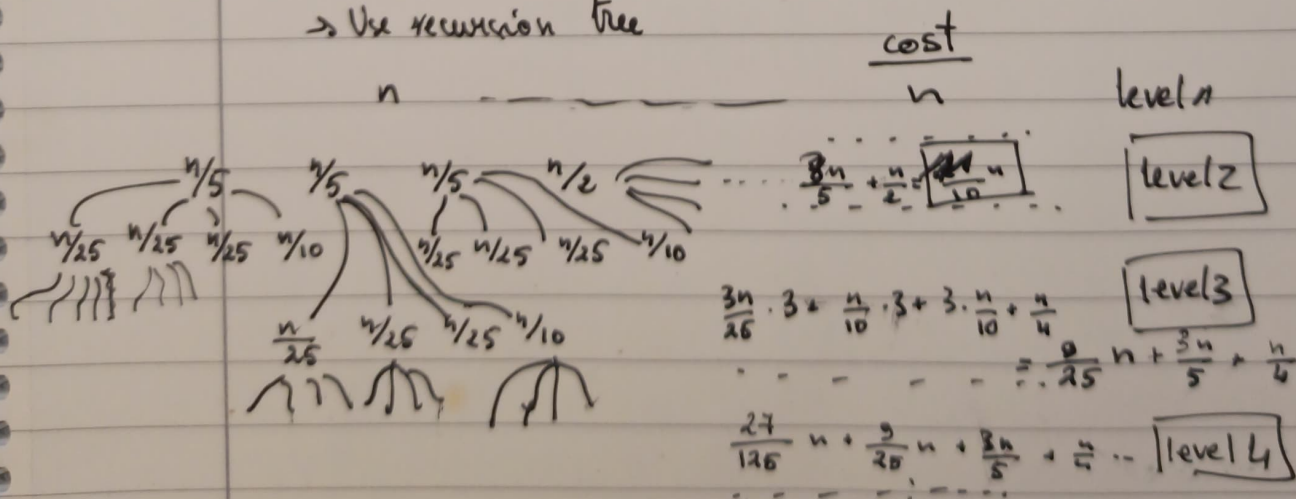 → Use recursion tree
cost
n n level 1
n/5 n/5 n/5 n/2 3n/5 + n/2 = /10 n level 2
n/25 n/25 n/25 n/10 n/25 n/25 n/25 n/10
3n/25 · 3 + n/10 · 3 + 3 · n/10 + n/4 level 3
n/25 n/25 n/25 n/10
= 9/25 n + 3n/5 + n/4
27/125 n + 9/25 n + 3n/5 + n/4 -- level 4